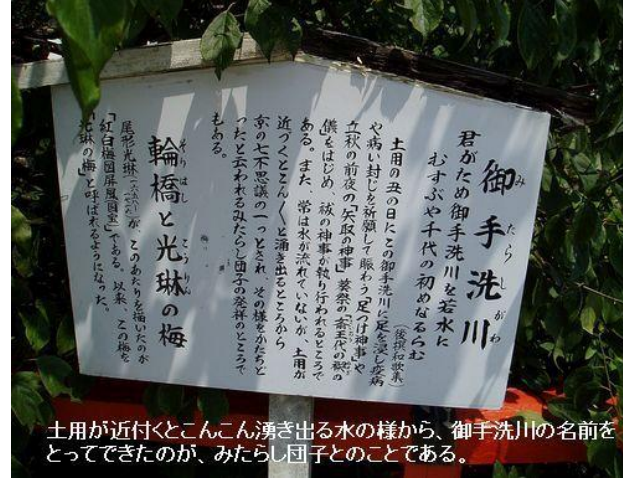 御手洗川
みたらしがわ
君がため御手洗川を若水に
むすぶや千代の初めなるらむ
(後撰和歌集)
土用の丑の日にこの御手洗川に足を浸し疫病
や病い封じを祈願して賑わう「足つけ神事」や
立秋の前夜の「矢取の神事」葵祭の「斎王代の禊の
儀」をはじめ 祓の神事が執り行われるところで
ある。また、常は水が流れていないが、土用が
近づくとこん〱と湧き出るところから
京の七不思議の一つとされ、その様をかたちど
ったと云われるみたらし団子の発祥のところで
もある。
輪橋と光琳の梅
そりはし こうりん
尾形光琳が、このあたりを描いたのが
「紅白梅図屏風国宝」である。以来、この梅を
「光琳の梅」と呼ばれるようになった。
土用が近付くとこんこん湧き出る水の様から、御手洗川の名前を
とってできたのが、みたらし団子とのことである。